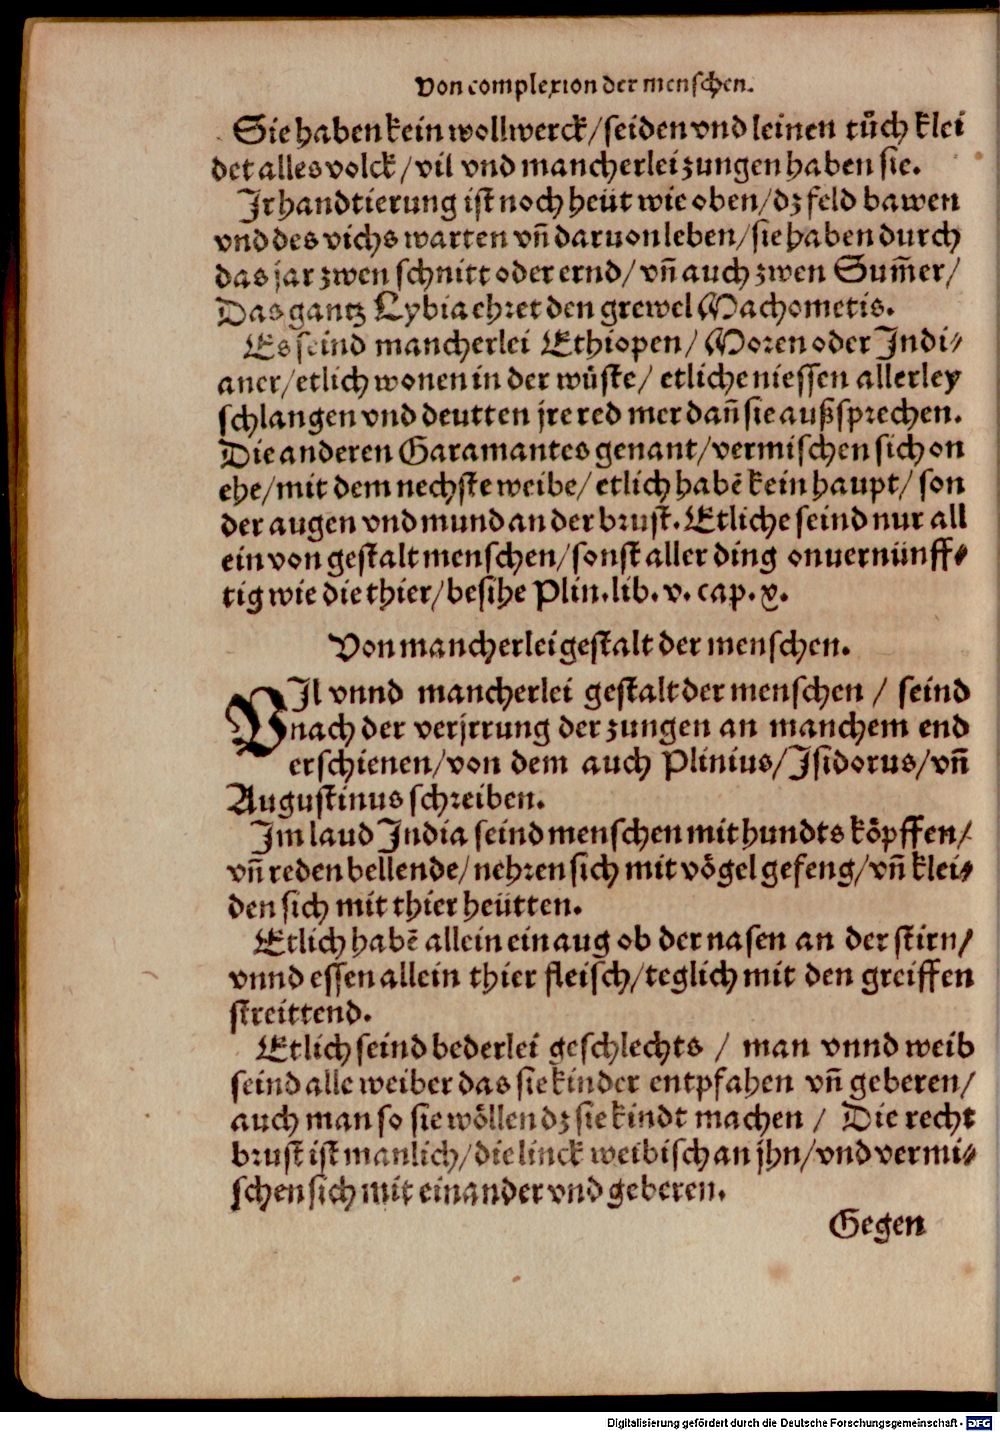 Von complexion der menschen.
Sie haben kein wollwerck/seiden vnd leinen tůch klei
det alles volck/vil vnd mancherlei zungen haben sie.
Jr handtierung ist noch heüt wie oben/dz feld bawen
vnd des vichs warten vñ daruon leben/sie haben durch
das jar zwen schnitt oder ernd/vñ auch zwen Sum̃er/
Das gantz Lybia ehret den grewel Machometis.
Es seind mancherlei Ethiopen/Moren oder Indi-
aner/etlich wonen in der wůste/etliche niessen allerley
schlangen vnd deutten jre red mer dañ sie außsprechen.
Die anderen Garamantes genant/vermischen sich on
ehe/mit dem nechste weibe/etlich habẽ kein haupt/son
der augen vnd mund an der brust. Etliche seind nur all
ein von gestalt menschen/sonst aller ding onuernünff-
tig wie die thier/besihe Plin.lib.v.cap.x.
Von mancherlei gestalt der menschen.
VJl vnnd mancherlei gestalt der menschen / seind
nach der verjrrung der zungen an manchem end
erschienen/von dem auch Plinius/Isidorus/vñ
Augustinus schreiben.
Im laud India seind menschen mit hundts kö̈pffen/
vñ reden bellende/nehren sich mit vögel gefeng/vñ klei-
den sich mit thier heütten.
Etlich habẽ allein ein aug ob der nasen an der stirn/
vnnd essen allein thier fleisch/teglich mit den greiffen
streittend.
Etlich seind bederlei geschlechts / man vnnd weib
seind alle weiber das sie kinder entpfahen vñ geberen/
auch man so sie wöllen dz sie kindt machen / Die recht
brust ist manlich/die linck weibisch an jhn/vnd vermi-
schen sich mit einander vnd geberen.
Gegen
Digitalisierung gefördert durch die Deutsche Forschungsgemeinschaft - DFG